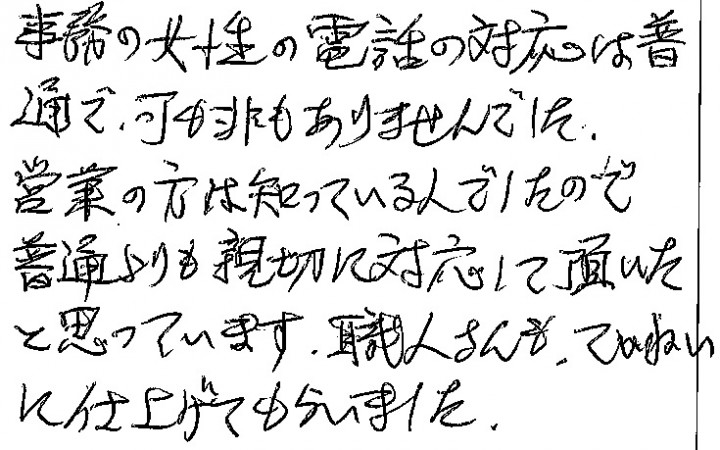 事務の女性の電話の対応は普
通で、可も非もありませんでした。
営業の方は知っている人でしたので
普通よりも親切に対応して頂いた
と思っています。職人さんも、ていねい
に仕上げてもらいました。